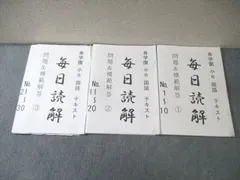 希学園 小6 国語 テキスト
毎日読解
問題&模範解答 ①
No.1~10
希学園 小6 国語 テキスト
毎日読解
問題&模範解答 ②
No.11~20
希学園 小6 国語 テキスト
毎日読解
問題&模範解答 ③
No.21~30